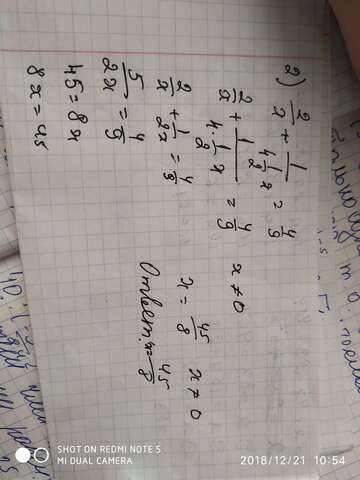 2) 2/x + 1/(4 1/2 x) = 4/9
2/x + 1/(4·1/2 x) = 4/9 x ≠ 0
2/x + 1/2x = 4/9
5/2x = 4/9
45 = 8x
8x = 45
x = 45/8 x ≠ 0
Ответ: x = 45/8
SHOT ON REDMI NOTE 5
MI DUAL CAMERA
2018/12/21 10:54